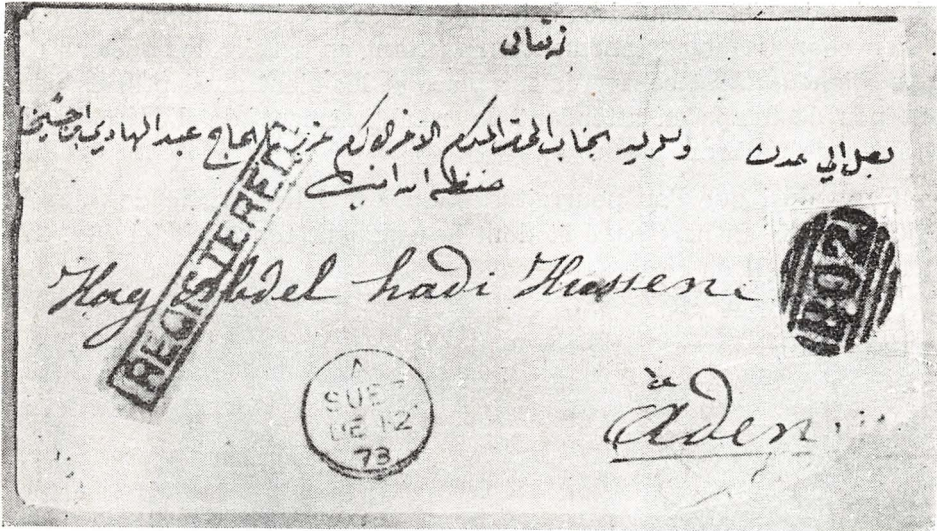 يصل الي عدن وبيد جناب المحترم المكرم الاخ عزيز الحاج عبد الهادي بن احسين
حفظه الله امين
REGISTERED
B02
Hag Abdel hadi Hussen
A
SUEZ
DE 12
73
Aden